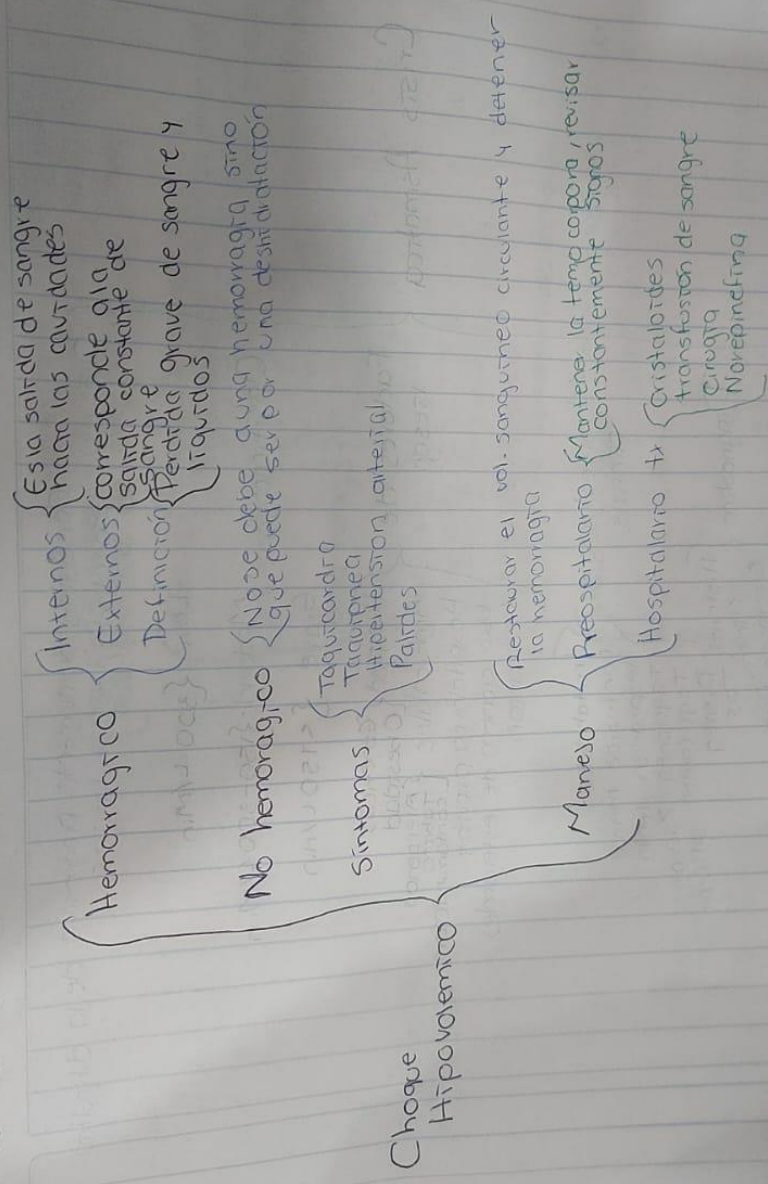 Choque
Hipovolemico
Hemorragico
Internos
Es la salida de sangre
hacia las cavidades
Externos
corresponde ala
salida constante de
sangre
Definición
Perdida grave de sangre y
liquidos
No hemoragico
No se debe auna hemorragia sino
que puede ser por una deshidratación
Síntomas
Taquicardia
Taquipnea
Hipertension arterial
Palides
Manejo
Restaurar el vol. sanguineo circulante y detener
la hemorragia
Preospitalario
Mantener la temp corpora, revisar
constantemente signos
Hospitalario tx
Cristaloides
transfusion de sangre
Cirugia
Norepinefina